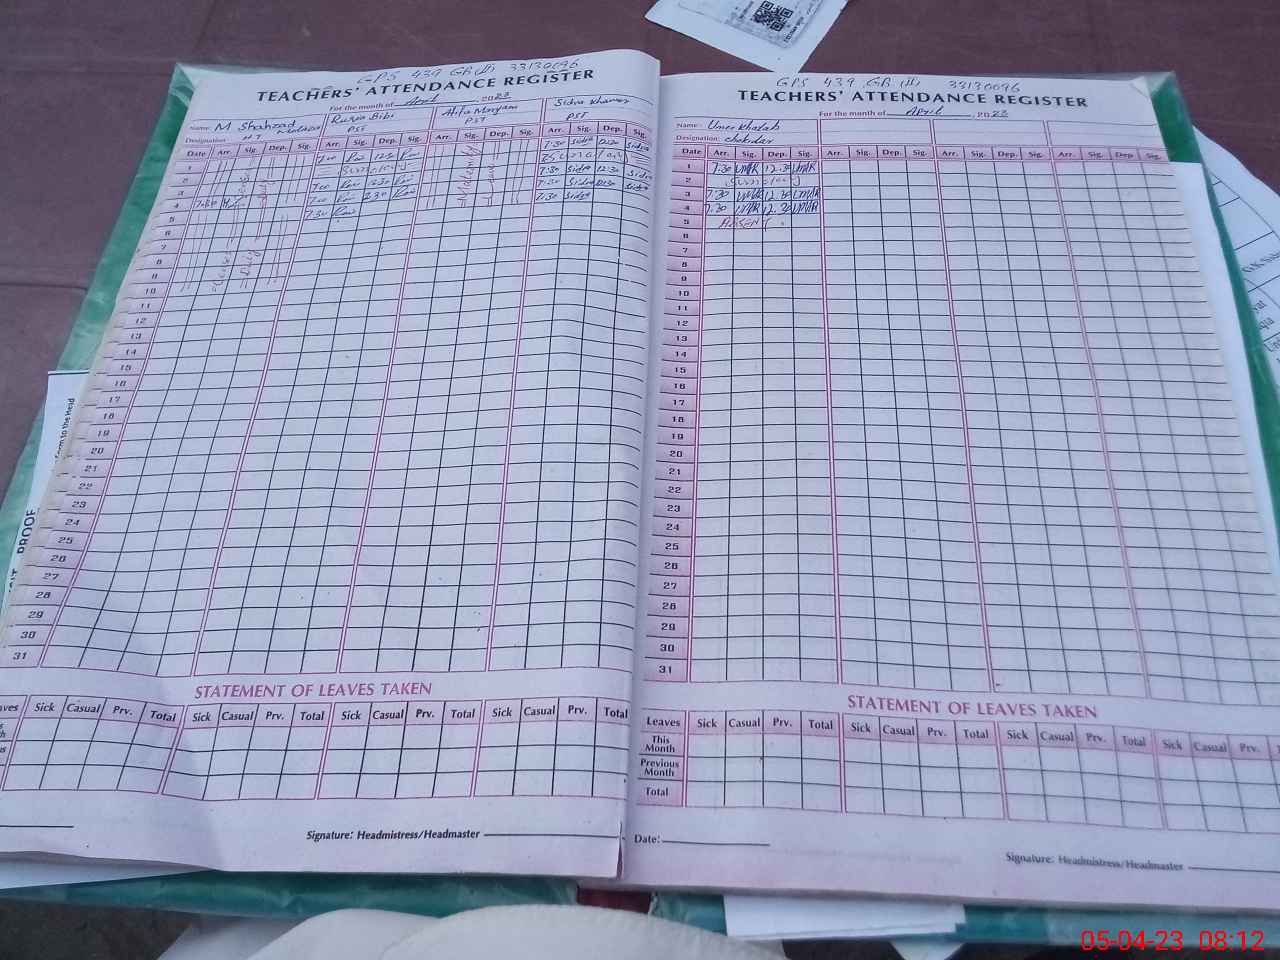 GPS 439 GB 33130096
TEACHERS' ATTENDANCE REGISTER
For the month of April, 2023
Name: M Shahzad
Ruqia Bibi
Atifa Maryam
Sidra Khanam
Designation: HT
PST
PST
PST
Date Arr. Sig. Dep. Sig. Arr. Sig. Dep. Sig. Arr. Sig. Dep. Sig. Arr. Sig. Dep. Sig.
1 7:30 Sidra 12:30 Sidra
2 Sunday
3 7:30 Sidra 12:30 Sidra
4 7:30 Sidra 12:30 Sidra
5 7:30 Sidra
6
7
8
9
10
11
12
13
14
15
16
17
18
19
20
21
22
23
24
25
26
27
28
29
30
31
STATEMENT OF LEAVES TAKEN
Sick Casual Prv. Total Sick Casual Prv. Total Sick Casual Prv. Total Sick Casual Prv. Total
Signature: Headmistress/Headmaster
GPS 439 GB 33130096
TEACHERS' ATTENDANCE REGISTER
For the month of April, 2023
Name: Umer Khatab
Designation: chokidar
Date Arr. Sig. Dep. Sig. Arr. Sig. Dep. Sig. Arr. Sig. Dep. Sig. Arr. Sig. Dep. Sig.
1 7:30 UMAR 12.30 UMAR
2 Sunday
3 7.30 UMAR 12.30 UMAR
4 7.30 UMAR 12.30 UMAR
5 ABSENT
6
7
8
9
10
11
12
13
14
15
16
17
18
19
20
21
22
23
24
25
26
27
28
29
30
31
STATEMENT OF LEAVES TAKEN
Leaves Sick Casual Prv. Total Sick Casual Prv. Total Sick Casual Prv. Total Sick Casual Prv.
This Month
Previous Month
Total
Date:
Signature: Headmistress/Headmaster
PROOF
to the Head
05-04-23 08:12